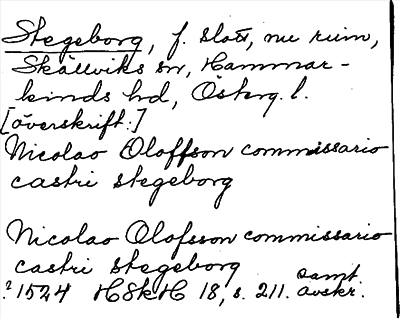 Stegeborg, f. slott, nu ruin,
Skällviks sn, Hammar-
kinds hd, Österg. l.
[överskrift:]
Nicolao Oloffson commissario
castri stegeborg
Nicolao Olofsson commissario
castri stegeborg samt.
?1524 HSkH 18, s. 211. avskr.